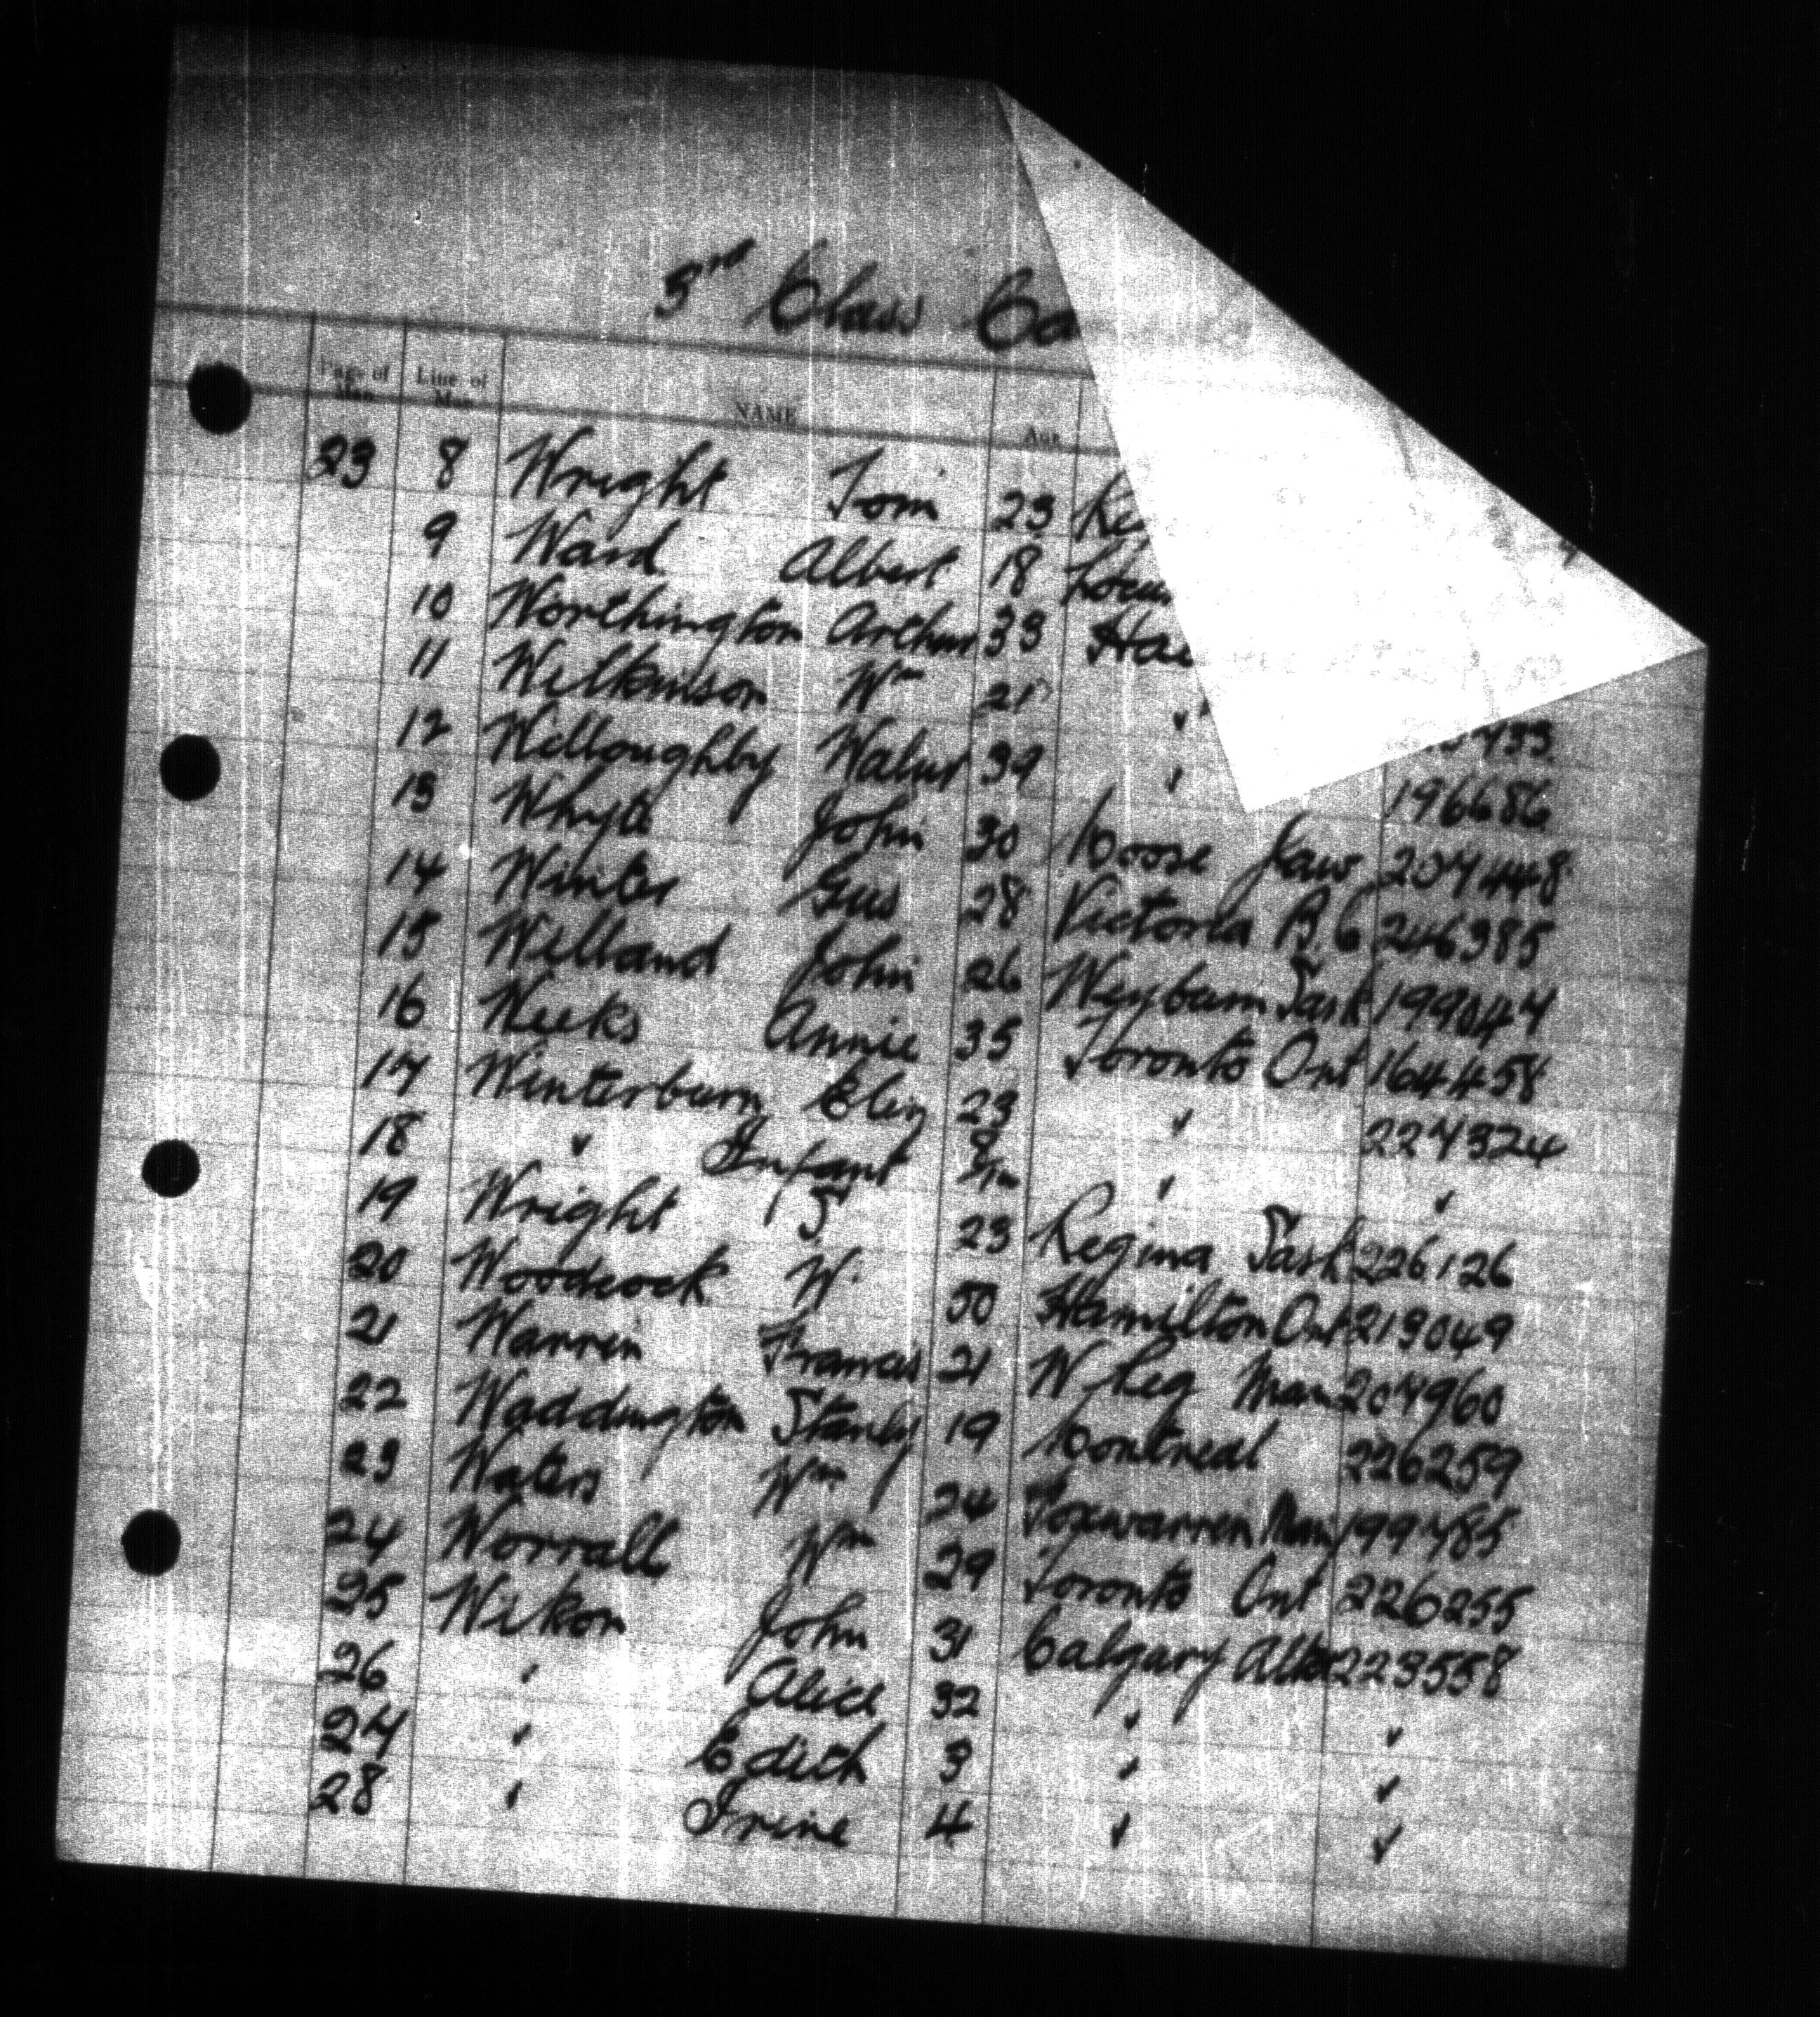 3rd Class Ca
Page of Man Line of Man NAME Age
23 8 Wright Tom 23 Reg
9 Ward Albert 18
10 Worthington Arthur 33 Ha
11 Wilkinson Wm 21 " 733
12 Willoughby Walter 39 " 196686
13 Whyte John 30 Moose Jaw 207448
14 Winter Gus 28 Victoria B.C 246385
15 Welland John 26 Weyburn Sask 199047
16 Weeks Annie 35 Toronto Ont 164458
17 Winterburn Eliz 23 " 227324
18 " Infant " "
19 Wright T 23 Regina Sask 226126
20 Woodcock W. 50 Hamilton Ont 213049
21 Warren Francis 21 W Peg Man 207960
22 Waddington Stanley 19 Montreal 226259
23 Waters Wm 24 Foxwarren Man 199785
24 Worrall Wm 29 Toronto Ont 226255
25 Wilson John 31 Calgary Alta 223558
26 " Alice 32 " "
27 " Edith 3 " "
28 " Irine 4 " "